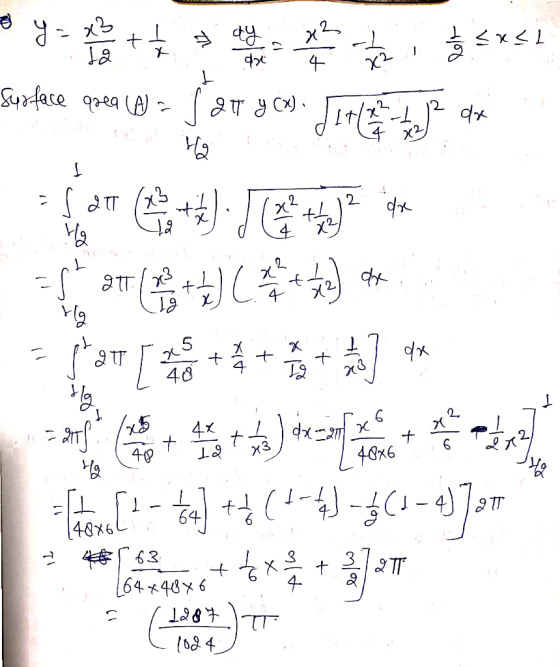 y = x³/12 + 1/x ⇒ dy/dx = x²/4 - 1/x² , 1/2 ≤ x ≤ 1
Surface area (A) = ∫_{1/2}^{1} 2π y(x). √(1+(x²/4 - 1/x²)²) dx
= ∫_{1/2}^{1} 2π (x³/12 + 1/x) . √((x²/4 + 1/x²)²) dx
= ∫_{1/2}^{1} 2π (x³/12 + 1/x) (x²/4 + 1/x²) dx
= ∫_{1/2}^{1} 2π [x⁵/48 + x/4 + x/12 + 1/x³] dx
= 2π ∫_{1/2}^{1} (x⁵/48 + 4x/12 + 1/x³) dx = 2π [x⁶/48×6 + x²/6 - 1/2x²]_{1/2}^{1}
= [1/48×6 [1 - 1/64] + 1/6 (1 - 1/4) - 1/2 (1 - 4)] 2π
⇒ [63/64×48×6 + 1/6 × 3/4 + 3/2] 2π
= (1287/1024) π